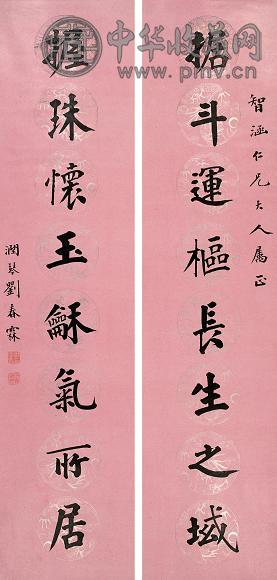 中华收藏网
www.pmv.cn
智涵仁兄大人属正
据斗運樞長生之域
握珠懷玉龢氣所居
潤琴劉春霖